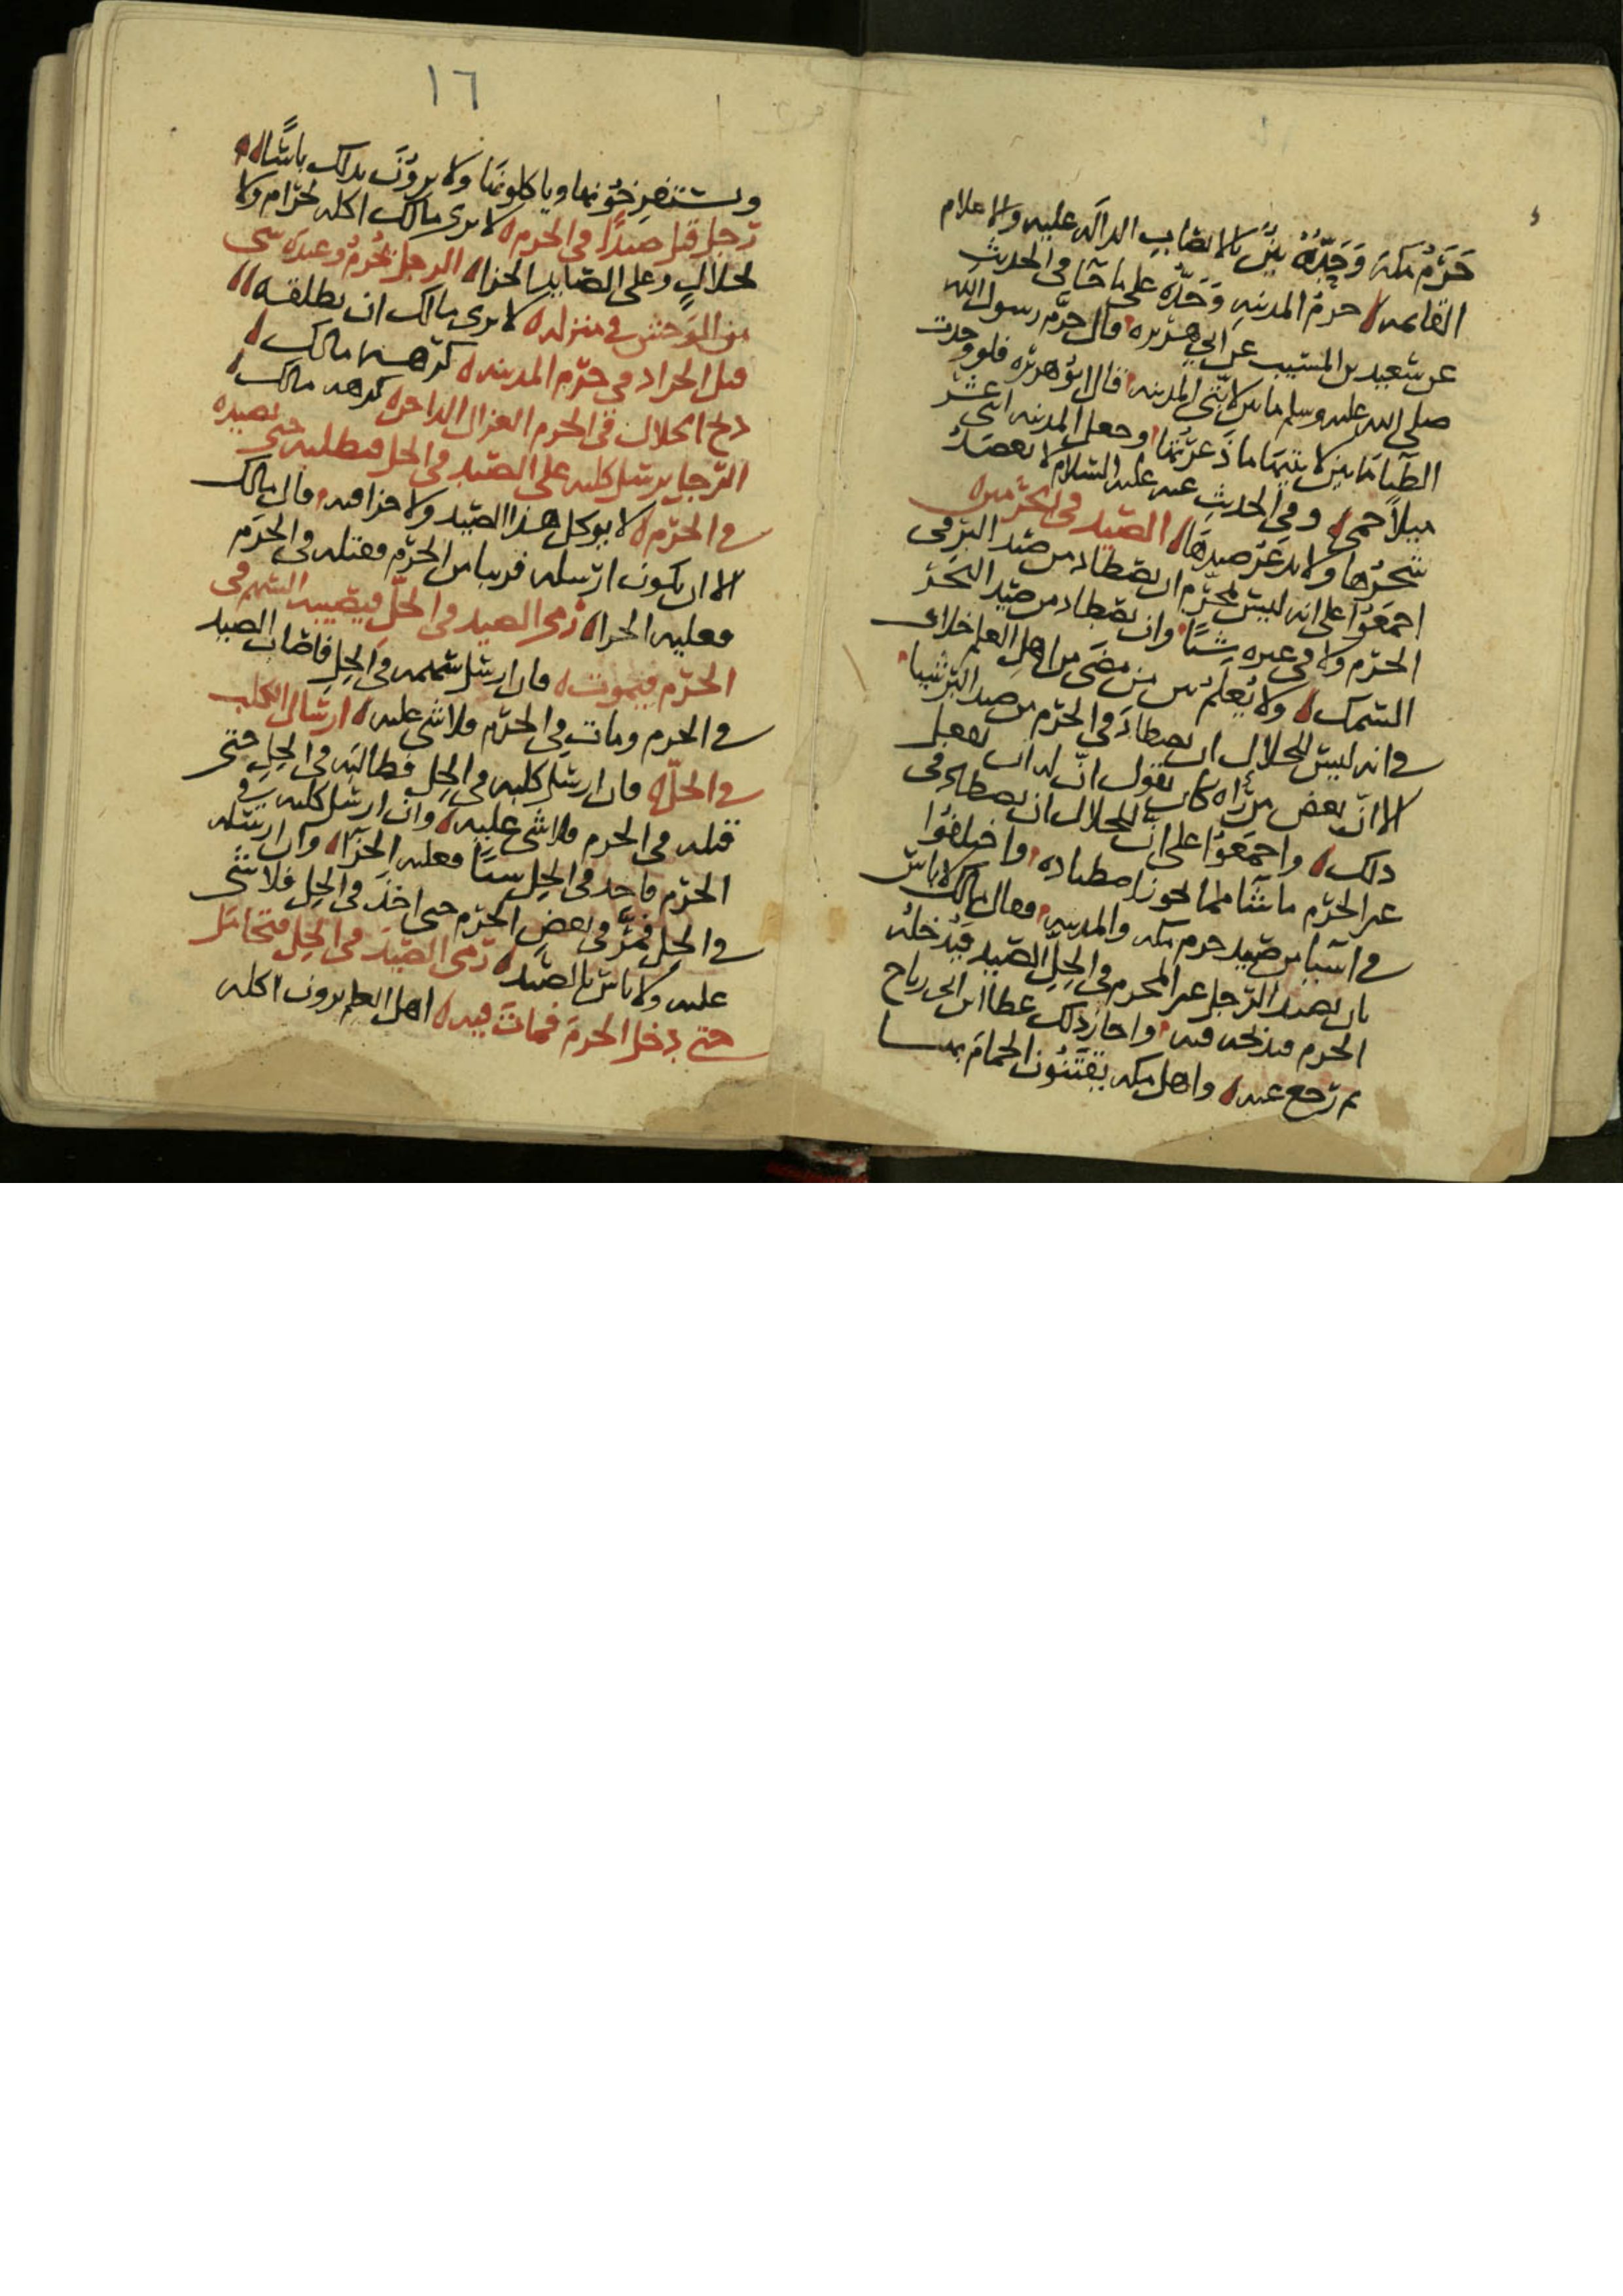 حَرَمُ مكة وَحَدُّهُ بَيِّنٌ بالانصاب الدالة عليه والاعلام
القائمه حرم المدينه وَحَدُّه على ما جا في الحديث
عن سعيد بن المسيب عن ابي هريره قال حرّم رسول الله
صلى الله عليه وسلم ما بين لابتي المدينه قال ابو هريرة فلو وجدت
الظبا ما بين لابتيها ما ذعرتها وجعل المدينه اثنى عشر
ميلاً حمى وفي الحديث عنه عليه السلام لا يعضد
شجرها ولا يذعر صيدها الصيد في الحرمين
اجمعوا على انه ليس لمحرم ان يصطاد من صيد البر في
الحرم ولا في غيره شيئا وان يصطاد من صيد البحر
السمك ولا يُعلم بين من مضى من اهل العلم خلاف
في انه ليس للحلال ان يصطاد في الحرم من صيد البر شيئا
الا ان بعض من كان يقول ان له ان يفعل
ذلك واجمعوا على ان للحلال ان يصطاد في
غير الحرم ما شا مما يجوز اصطياده واختلفوا
في اشيا من صيد حرم مكه والمدينه فقال مالك لا باس
بان يصيد الرجل غير المحرم في الحل الصيد فيدخله
الحرم فيذبحه فيه واجاز ذلك عطا ابن ابي رباح
ثم رجع عنه واهل مكه يقتنون الحمام بها
١٦
ويستفرخونها وياكلونها ولا يرون بذلك باسًا
رجل قتل صيدًا في الحرم لا يرى مالك اكله لحرام ولا
لحلال وعلى الصايد الجزا الرجل يحرم وعنده شي
من الوحش في منزله لا يرى مالك ان يطلقه
قتل الجراد في حرم المدينه كرهه مالك
ذبح الحلال في الحرم الغزال الداجن كرهه مالك
الرجل يرسل كلبه على الصيد في الحل فيطلبه حتى يصيده
في الحرم لا يوكل هذا الصيد ولا جزا فيه قال مالك
الا ان يكون ارسله قريبا من الحرم فقتله في الحرم
فعليه الجزا رمى الصيد في الحل فيصيبه السهم في
الحرم فيموت فان ارسل سهمه في الحل فاصاب الصيد
في الحرم ومات في الحرم فلا شي عليه ارسال الكلب
في الحل فان ارسل كلبه في الحل فطالبه في الحل حتى
قتله في الحرم فلا شي عليه وان ارسل كلبه في
الحرم فاخذ في الحل شيئا فعليه الجزا وان ارسله
في الحل فمر في بعض الحرم حتى اخذ في الحل فلا شي
عليه ولا باس بالصيد رمى الصيد في الحل فتحامل
حتى دخل الحرم فمات فيه اهل العلم يرون اكله